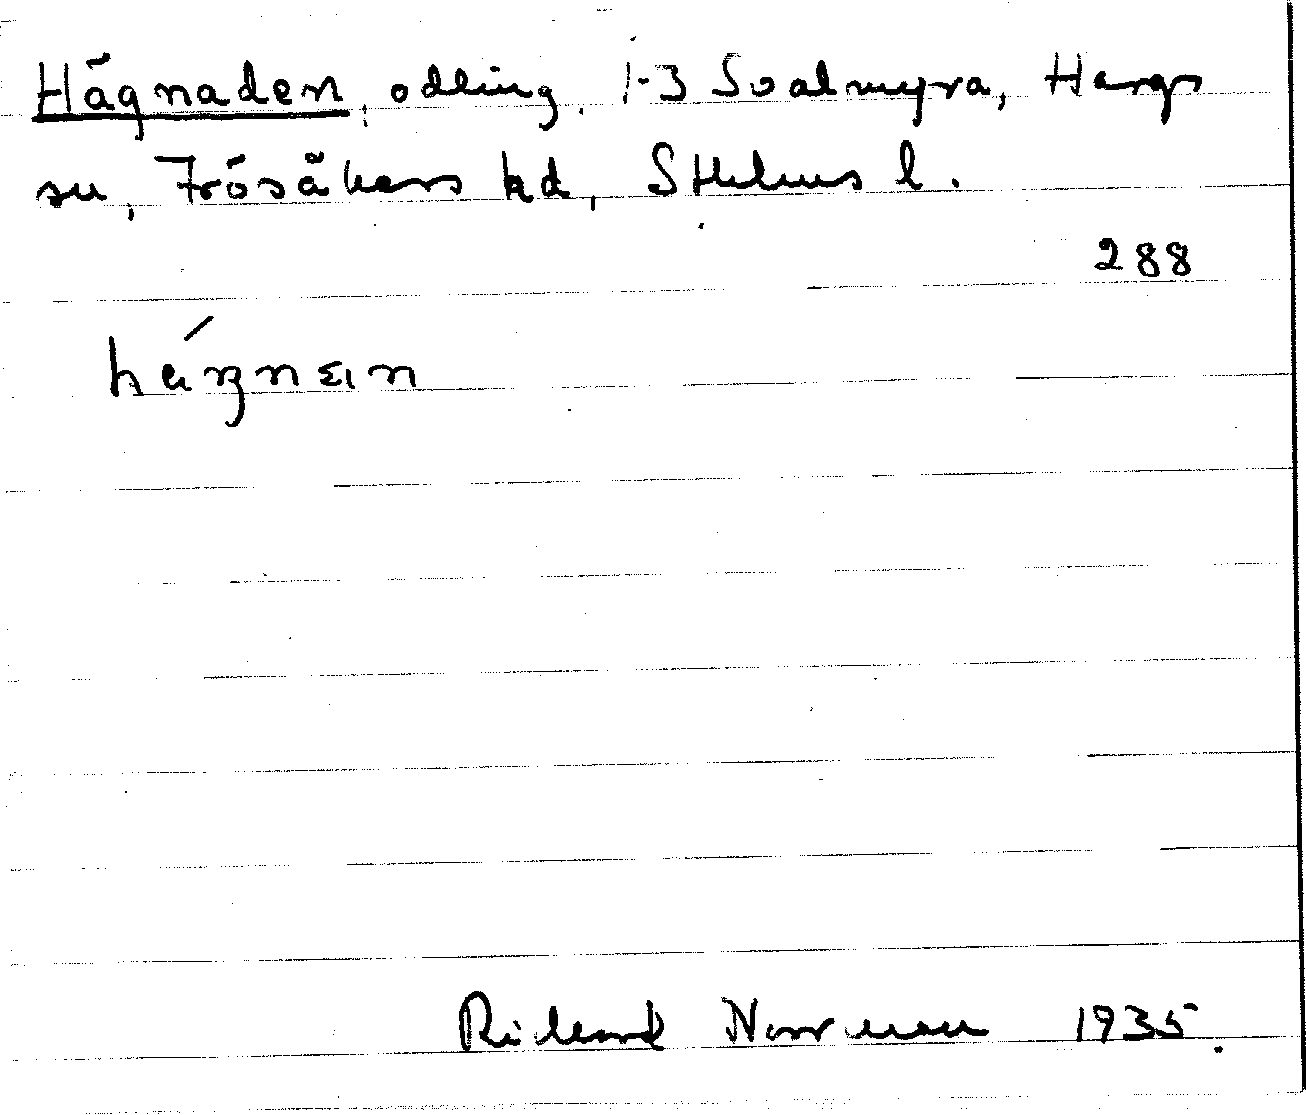 Hägnaden, odling, 1-3 Svalmyra, Hargs
sn, Frösåkers hd, Sthlms l.
288
Rickard Norrman 1935.